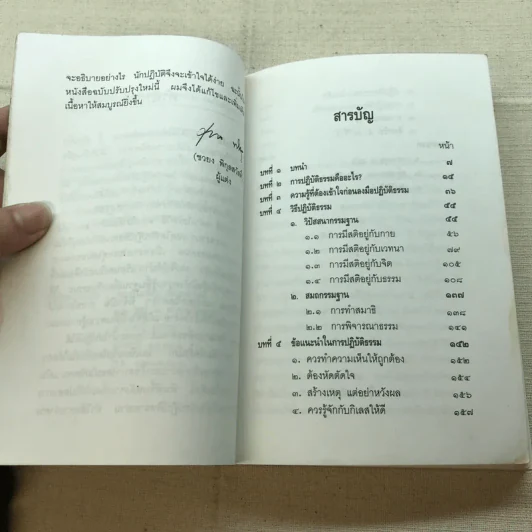 จะอธิบายอย่างไร นักปฏิบัติจึงจะเข้าใจได้ง่าย
หนังสือฉบับปรับปรุงใหม่นี้ ผมจึงได้แก้ไขและเพิ่มเติม
เนื้อหาให้สมบูรณ์ยิ่งขึ้น
(ชวยง
ผู้แต่ง
สารบัญ
หน้า
บทที่ ๑ บทนำ ๗
บทที่ ๒ การปฏิบัติธรรมคืออะไร? ๑๕
บทที่ ๓ ความรู้ที่ต้องเข้าใจก่อนลงมือปฏิบัติธรรม ๓๖
บทที่ ๔ วิธีปฏิบัติธรรม ๕๕
๑. วิปัสสนากรรมฐาน ๕๕
๑.๑ การมีสติอยู่กับกาย ๕๖
๑.๒ การมีสติอยู่กับเวทนา ๗๙
๑.๓ การมีสติอยู่กับจิต ๑๐๕
๑.๔ การมีสติอยู่กับธรรม ๑๐๘
๒. สมถกรรมฐาน ๑๓๗
๒.๑ การทำสมาธิ ๑๓๘
๒.๒ การพิจารณาธรรม ๑๔๑
บทที่ ๕ ข้อแนะนำในการปฏิบัติธรรม ๑๕๒
๑. ควรทำความเห็นให้ถูกต้อง ๑๕๒
๒. ต้องหัดตัดใจ ๑๕๔
๓. สร้างเหตุ แต่อย่าหวังผล ๑๕๖
๔. ควรรู้จักกับกิเลสให้ดี ๑๕๗